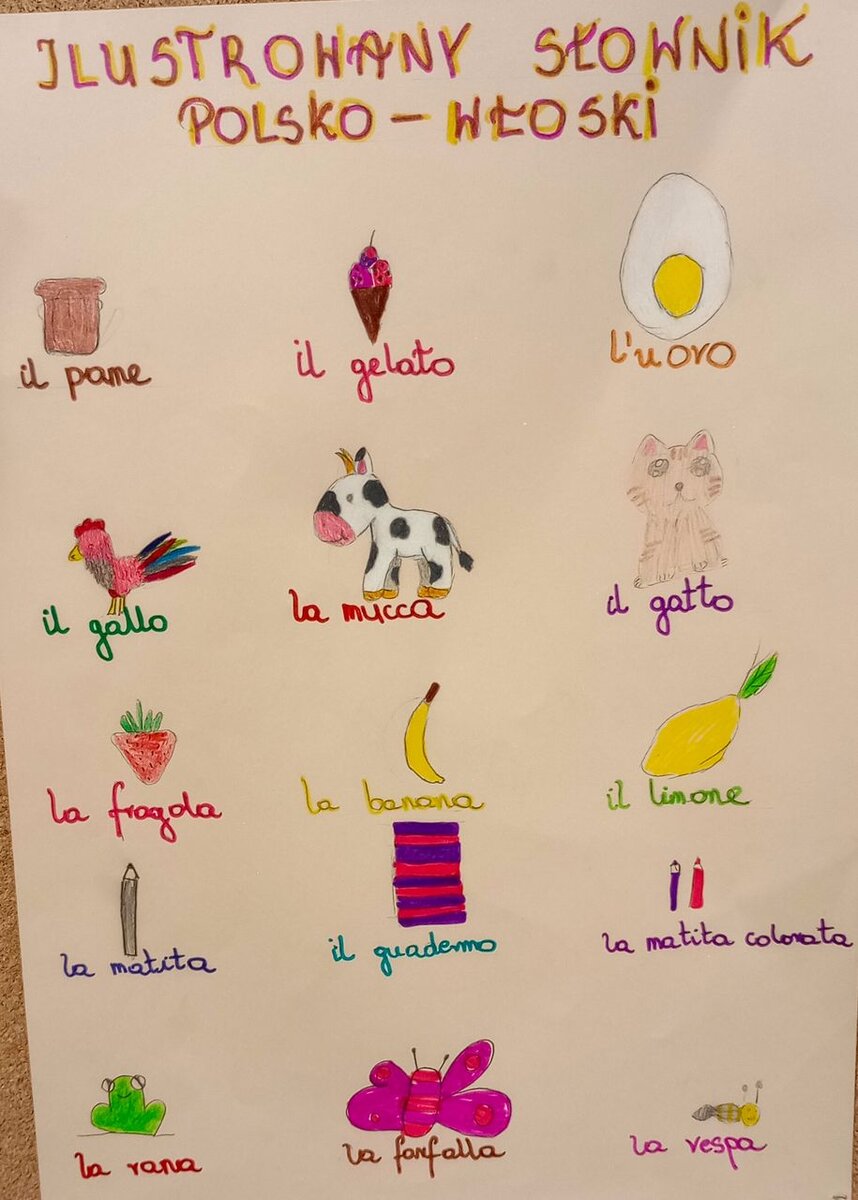 ILUSTROWANY SŁOWNIK
POLSKO - WŁOSKI
il pane
il gelato
l'uovo
il gallo
la mucca
il gatto
la fragola
la banana
il limone
la matita
il quaderno
la matita colorata
la rana
la farfalla
la vespa